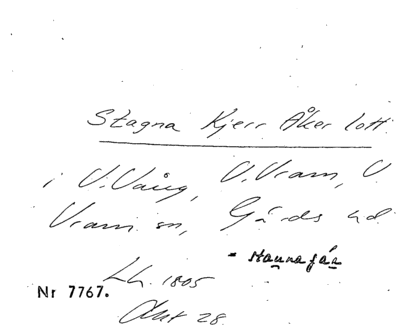 Stagna Kjerr Åker lott
i V. Vång, V. Vram, V.
Vram sn, Gärds hd.
- Hannasjän
Lh. 1805
Akt 28.
Nr 7767.